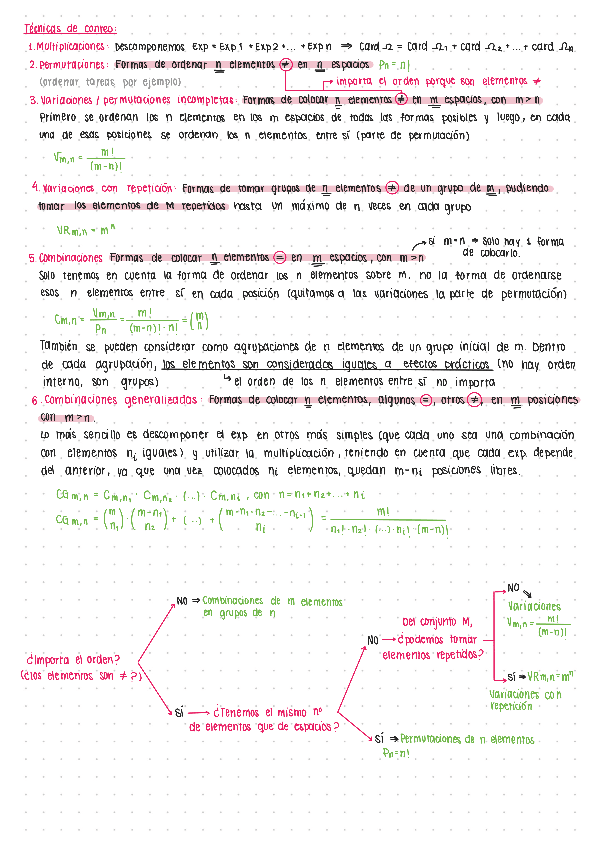 Técnicas de conteo:
1. Multiplicaciones: Descomponemos Exp = Exp 1 * Exp 2 * ... * Exp n ⇒ Card Ω = Card Ω₁ + Card Ω₂ + ... + card Ωn
2. Permutaciones: Formas de ordenar n elementos ≠ en n espacios Pn = n!
(ordenar tareas, por ejemplo)
importa el orden porque son elementos ≠
3. Variaciones / permutaciones incompletas: Formas de colocar n elementos ≠ en m espacios, con m > n
Primero se ordenan los n elementos en los m espacios de todas las formas posibles y luego, en cada
una de esas posiciones se ordenan los n elementos entre sí (parte de permutación)
Vm,n = m! / (m-n)!
4. Variaciones con repetición: Formas de tomar grupos de n elementos ≠ de un grupo de m, pudiendo
tomar los elementos de M repetidos hasta un máximo de n veces en cada grupo
VRm,n = mⁿ
si m=n ⇒ solo hay 1 forma
de colocarlo.
5. Combinaciones Formas de colocar n elementos = en m espacios, con m > n
Solo tenemos en cuenta la forma de ordenar los n elementos sobre m, no la forma de ordenarse
esos n elementos entre sí en cada posición (quitamos a las variaciones la parte de permutación)
Cm,n = Vm,n / Pn = m! / (m-n)! · n! = (m n)
También se pueden considerar como agrupaciones de n elementos de un grupo inicial de m. Dentro
de cada agrupación, los elementos son considerados iguales a efectos prácticos (no hay orden
interno, son grupos) ↳ el orden de los n elementos entre sí no importa
6. Combinaciones generalizadas: Formas de colocar n elementos, algunos =, otros ≠, en m posiciones
con m > n.
Lo más sencillo es descomponer el exp en otros más simples (que cada uno sea una combinación
con elementos ni iguales) y utilizar la multiplicación, teniendo en cuenta que cada exp. depende
del anterior, ya que una vez colocados ni elementos, quedan m-ni posiciones libres.
CGm,n = Cm,n₁ · Cm,n₂ · (...) · Cm,ni , con n = n₁+n₂+...+ni
CGm,n = (m n₁) · (m-n₁ n₂) + (...) + (m-n₁-n₂-...-ni-1 ni) = m! / n₁! · n₂! · (...) · ni! · (m-n)!
¿Importa el orden?
(¿los elementos son ≠?)
NO ⇒ Combinaciones de m elementos
en grupos de n
SÍ → ¿Tenemos el mismo nº
de elementos que de espacios?
NO → Del conjunto M,
¿podemos tomar
elementos repetidos?
NO
Variaciones
Vm,n = m! / (m-n)!
SÍ ⇒ VRm,n = mⁿ
Variaciones con
repetición
SÍ ⇒ Permutaciones de n elementos
Pn = n!